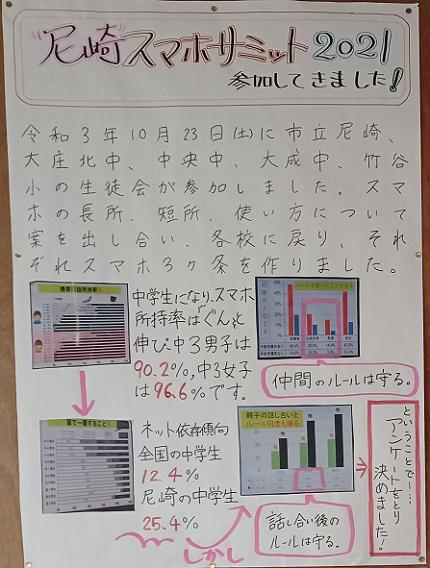 尼崎スマホサミット2021
参加してきました!
令和3年10月23日(土)に市立尼崎、
大庄北中、中央中、大成中、竹谷
小の生徒会が参加しました。スマ
ホの長所、短所、使い方について
案を出し合い、各校に戻り、それ
ぞれスマホ3ヶ条を作りました。
中学生になり、スマホ
所持率はぐんと
伸び、中3男子は
90.2%,中3女子
は96.6%です。
仲間のルールは守る。
ネット依存傾向
全国の中学生
12.4%
尼崎の中学生
25.4%
しかし
親子の話し合いと
ルール何度も破る
話し合い後の
ルールは守る。
ということで……
アンケートをとり
決めました!